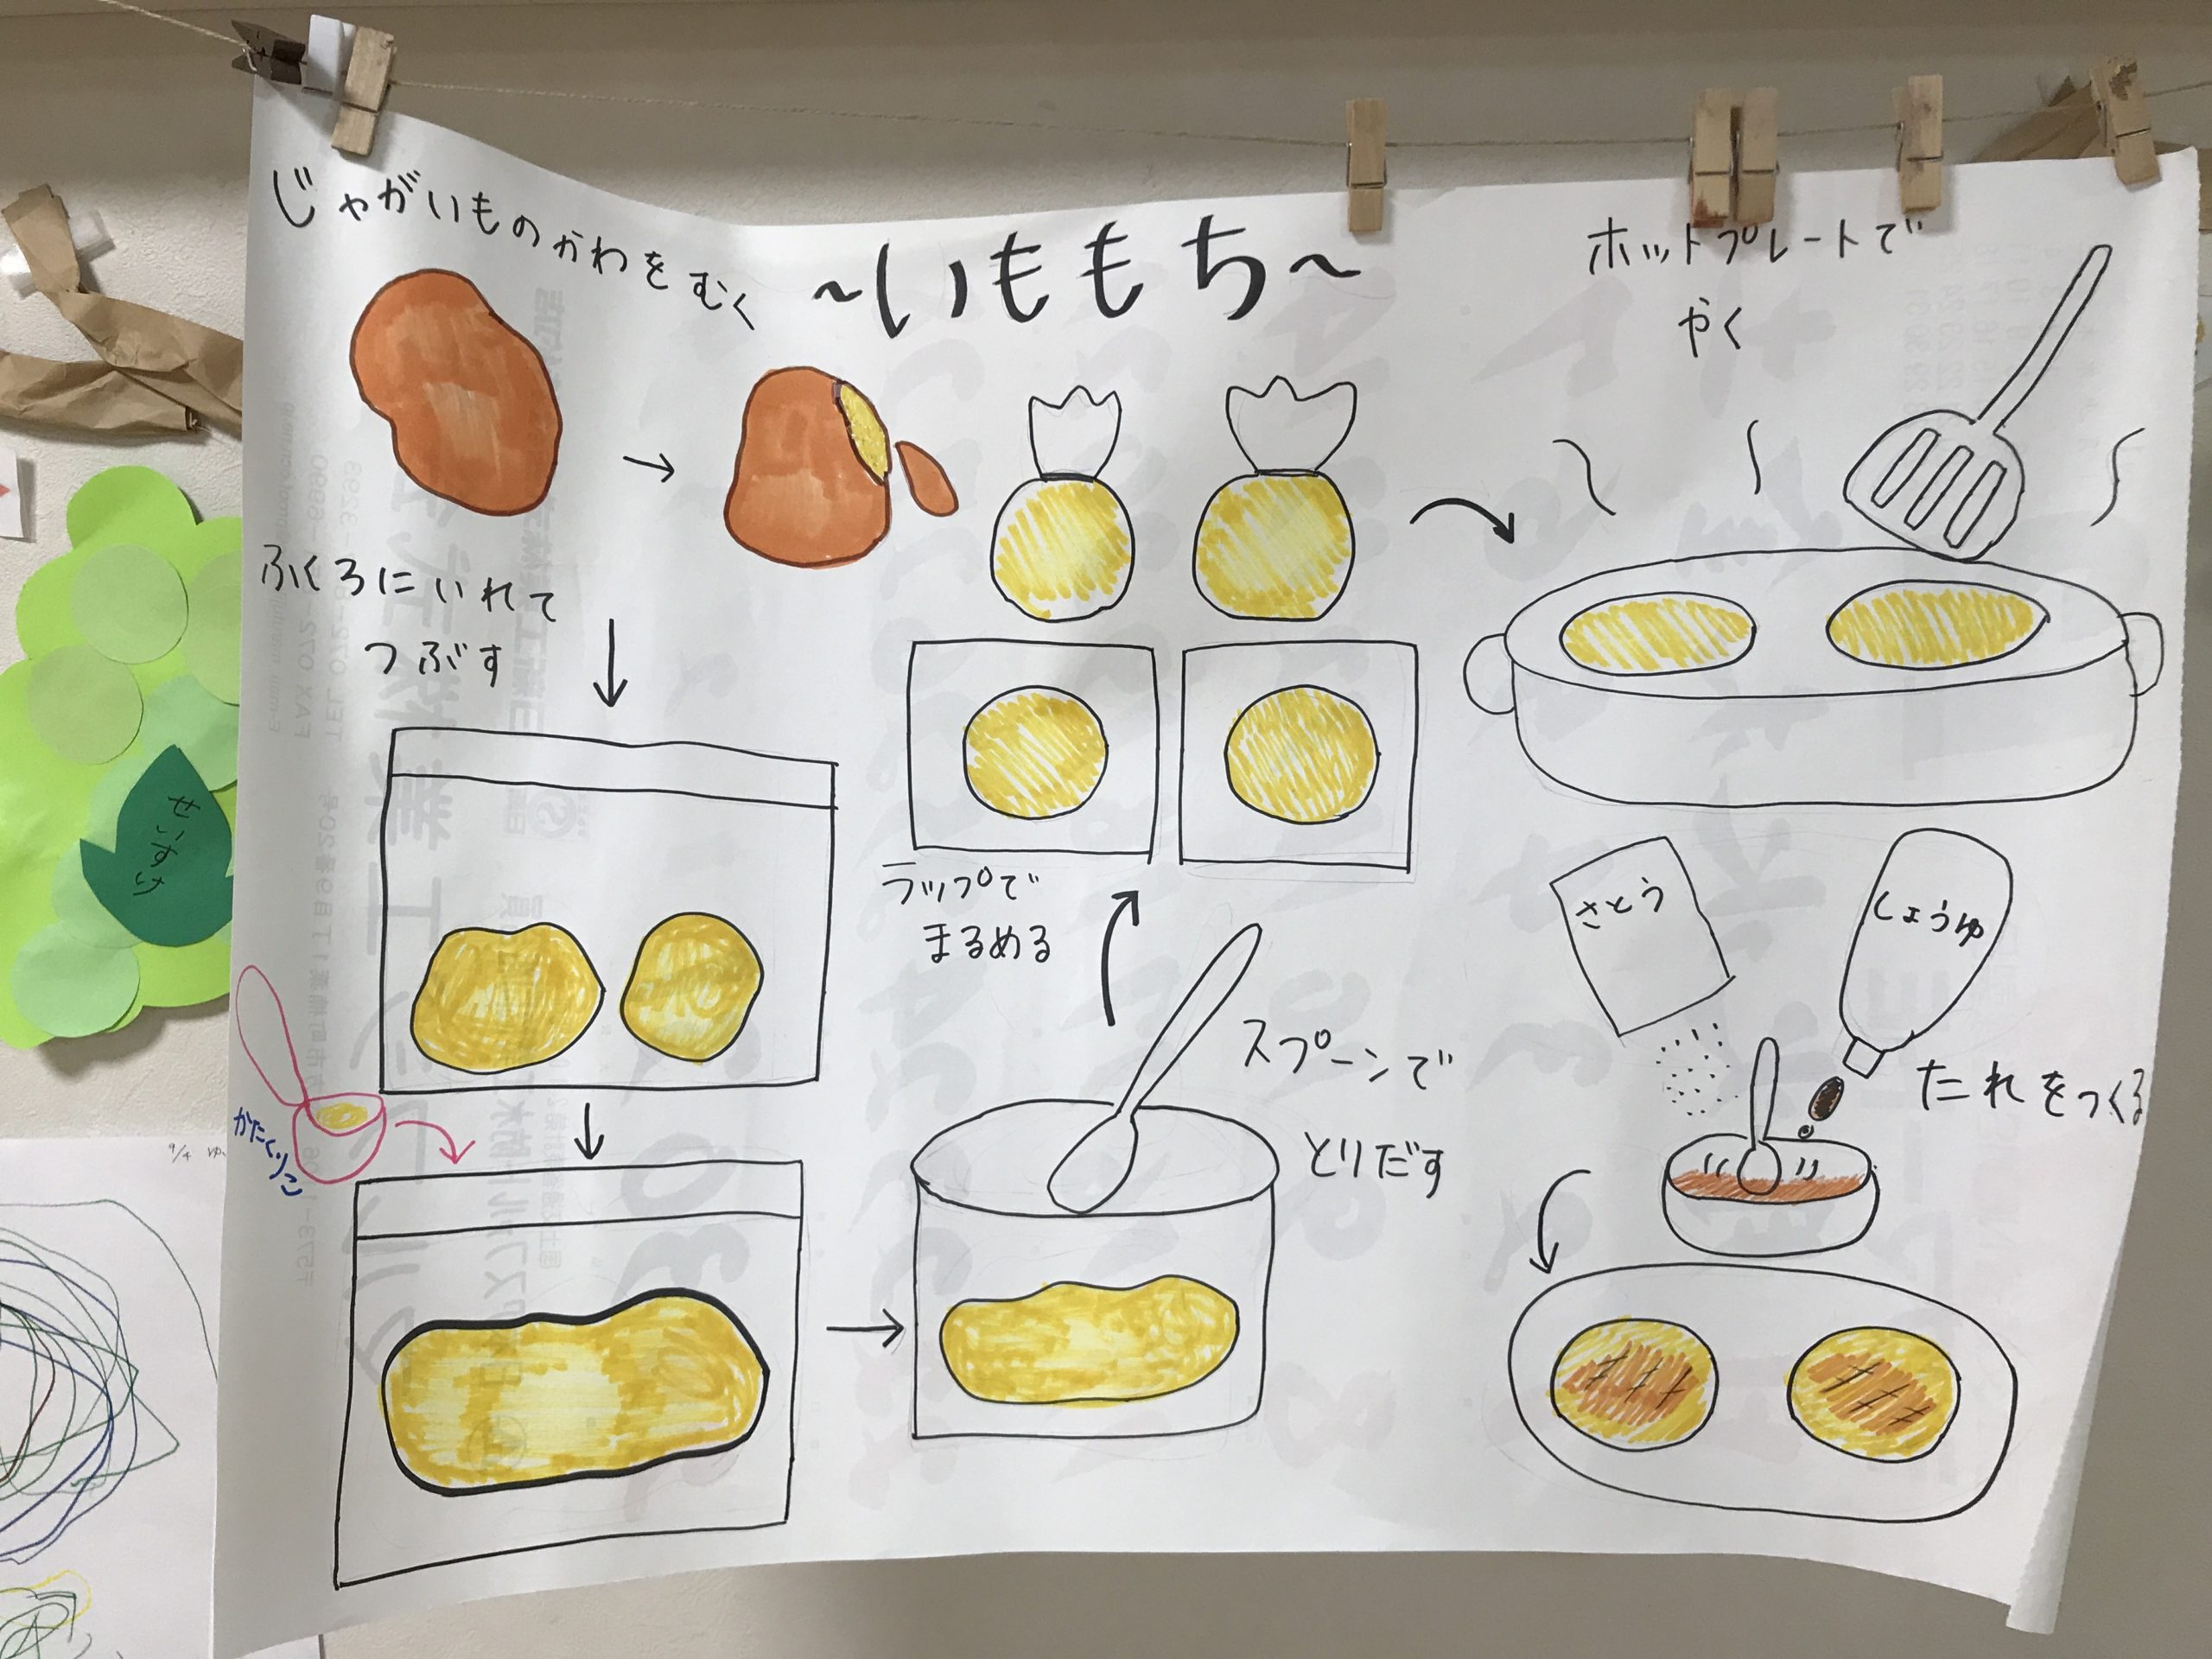 ～いももち～
じゃがいものかわをむく
ふくろにいれて
つぶす
かたくりこ
スプーンで
とりだす
ラップで
まるめる
ホットプレートで
やく
さとう
しょうゆ
たれをつくる
せいすけ
9/4 ゆ